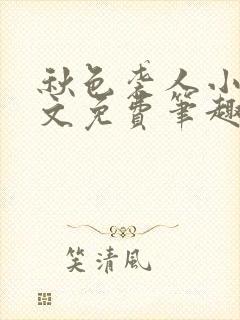 秋色袭人小
文免費筆趣
笑清風